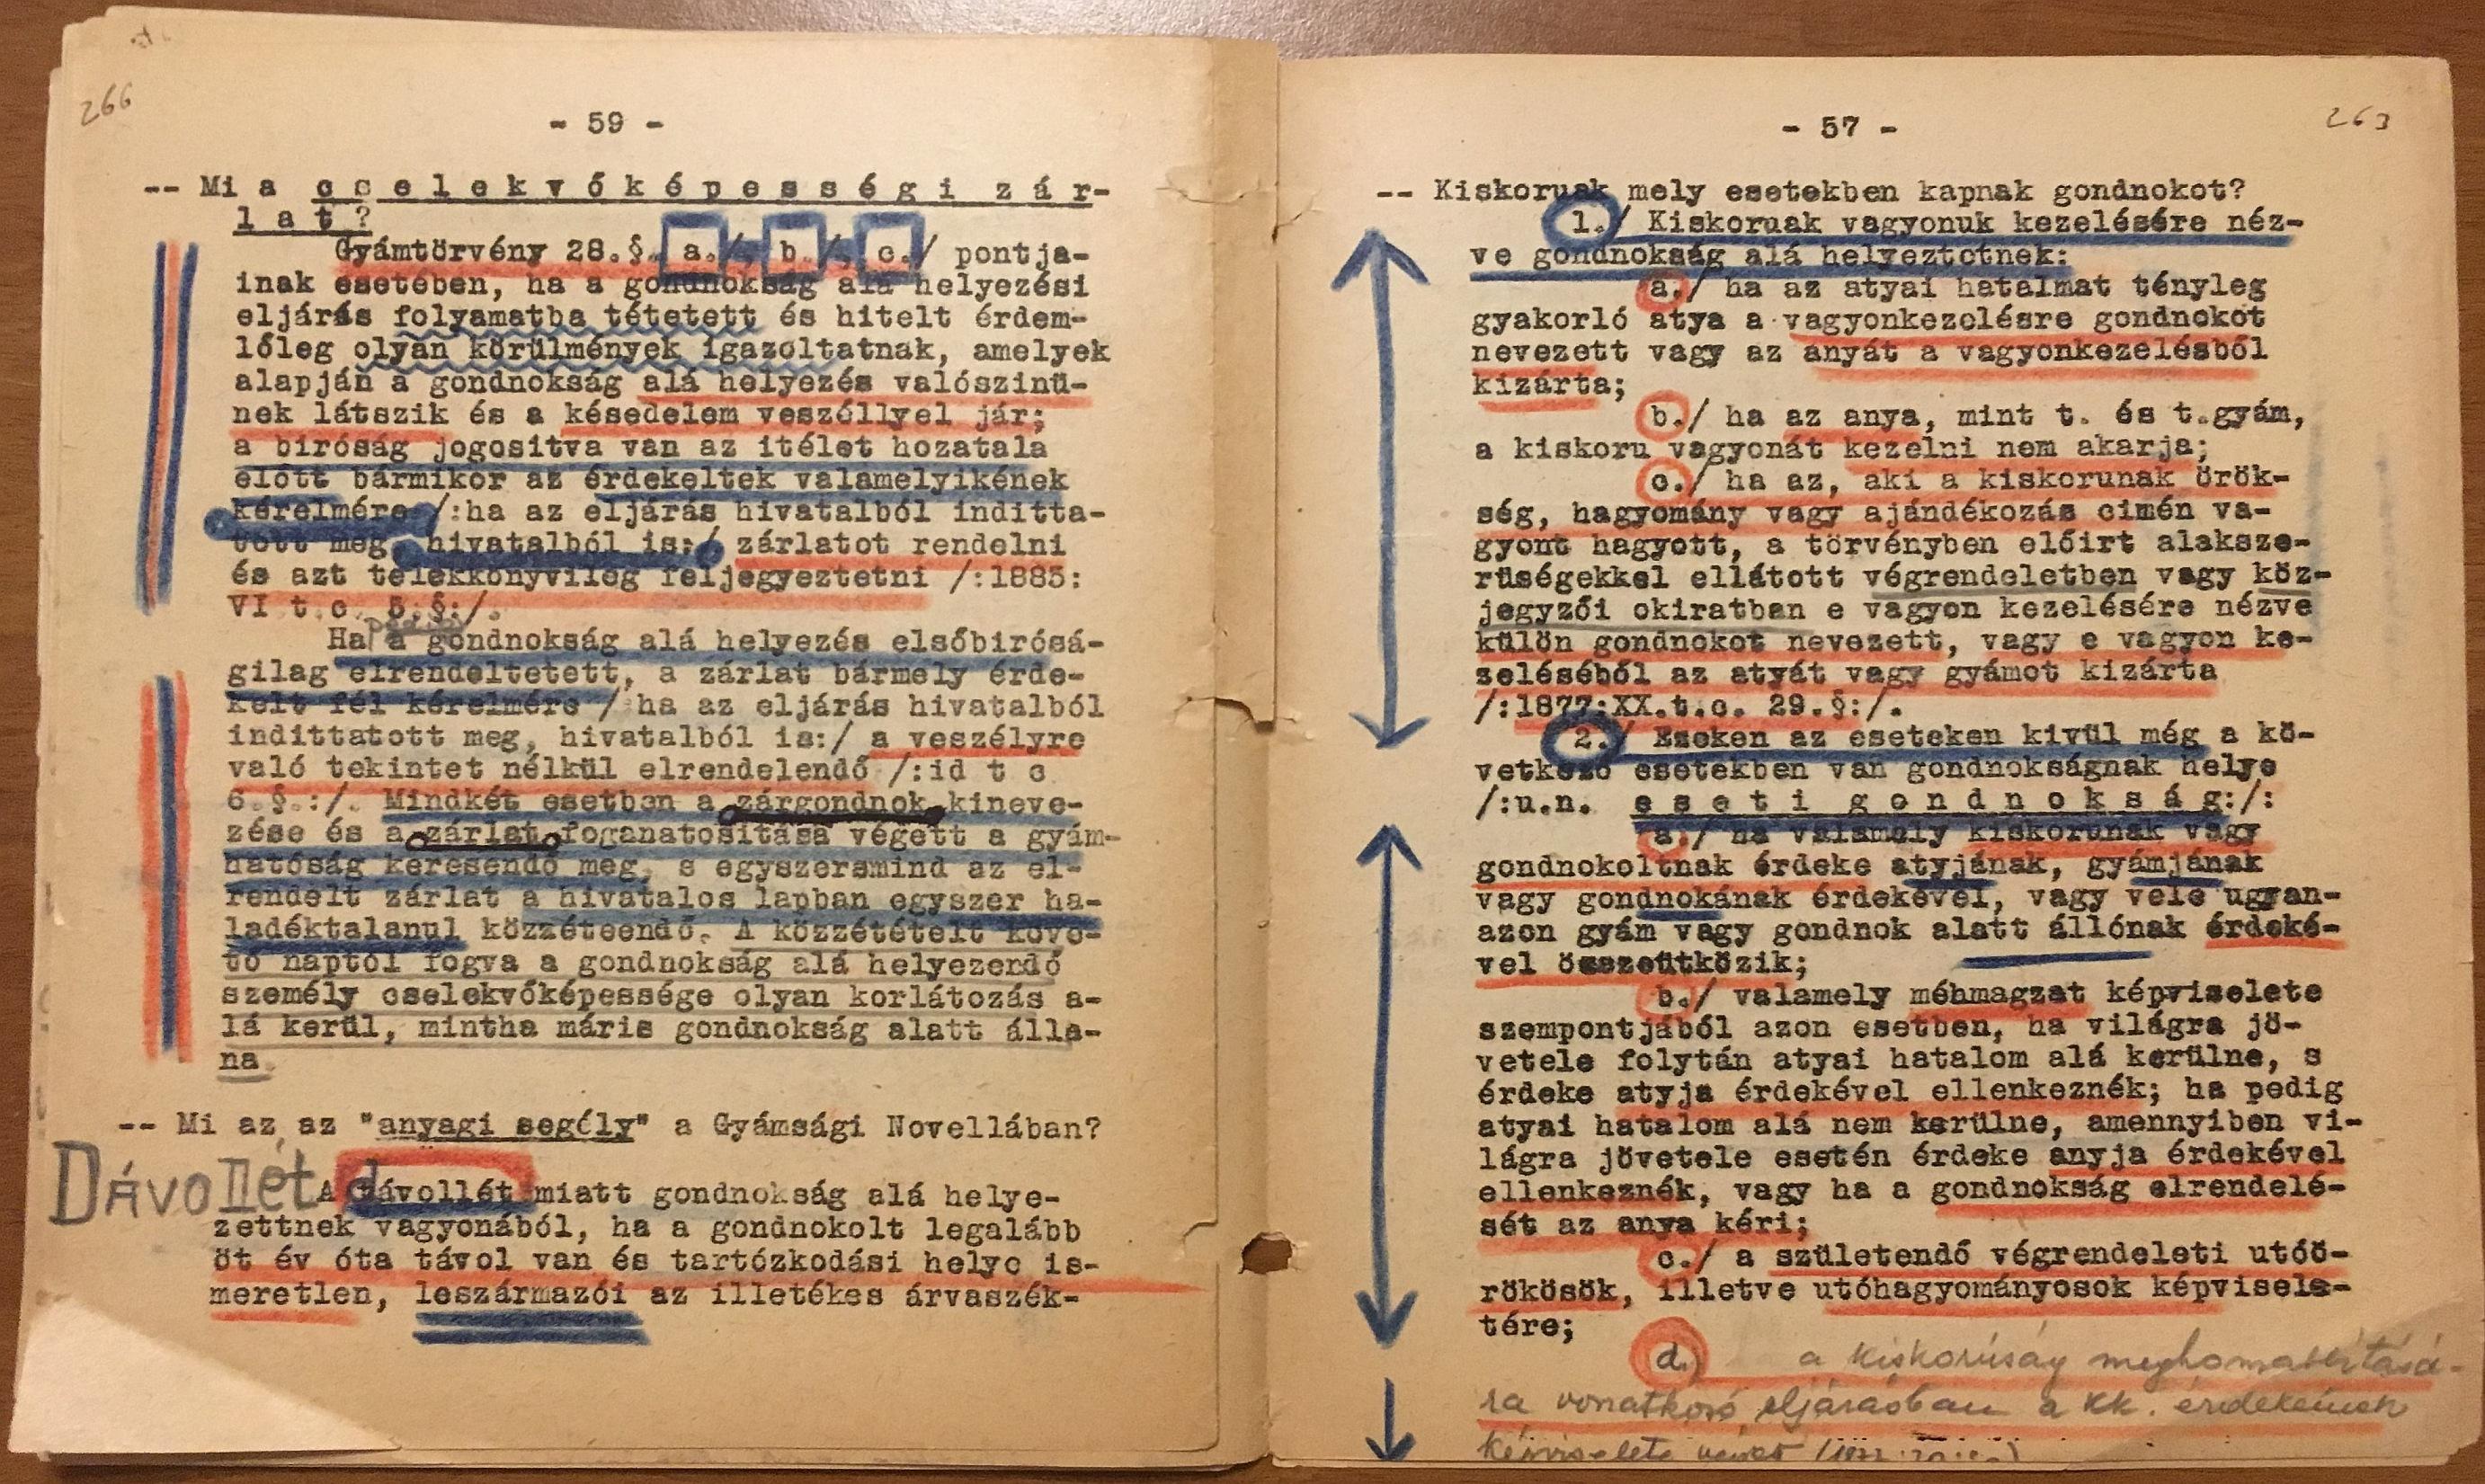 266
- 59 -
-- Mi a cselekvőképességi zár-
lat?
Gyámtörvény 28.§. a./, b./, c./ pontja-
inak esetében, ha a gondnokság alá helyezési
eljárás folyamatba tétetett és hitelt érdem-
lőleg olyan körülmények igazoltatnak, amelyek
alapján a gondnokság alá helyezés valószinü-
nek látszik és a késedelem veszéllyel jár;
a biróság jogositva van az itélet hozatala
előtt bármikor az érdekeltek valamelyikének
kérelmére /:ha az eljárás hivatalból inditta-
tott meg, hivatalból is:/ zárlatot rendelni
és azt telekkönyvileg feljegyeztetni /:1885:
VI t.c. 5.§:/.
Ha a gondnokság alá helyezés elsőbirósá-
gilag elrendeltetett, a zárlat bármely érde-
kelt fél kérelmére /:ha az eljárás hivatalból
indittatott meg, hivatalból is:/ a veszélyre
való tekintet nélkül elrendelendő /:id t c
6.§.:/. Mindkét esetben a zárgondnok kineve-
zése és a zárlat foganatositása végett a gyám-
hatóság keresendő meg, s egyszersmind az el-
rendelt zárlat a hivatalos lapban egyszer ha-
ladéktalanul közzéteendő. A közzétételt köve-
tő naptól fogva a gondnokság alá helyezendő
személy cselekvőképessége olyan korlátozás a-
lá kerül, mintha máris gondnokság alatt álla-
na.
-- Mi az az "anyagi segély" a Gyámsági Novellában?
Dávollét
A dávollét miatt gondnokság alá helye-
zettnek vagyonából, ha a gondnokolt legalább
öt év óta távol van és tartózkodási helye is-
meretlen, leszármazói az illetékes árvaszék-
263
- 57 -
-- Kiskoruak mely esetekben kapnak gondnokot?
1./ Kiskoruak vagyonuk kezelésére néz-
ve gondnokság alá helyeztetnek:
a./ ha az atyai hatalmat tényleg
gyakorló atya a vagyonkezelésre gondnokot
nevezett vagy az anyát a vagyonkezelésből
kizárta;
b./ ha az anya, mint t. és t.gyám,
a kiskoru vagyonát kezelni nem akarja;
c./ ha az, aki a kiskorunak örök-
ség, hagyomány vagy ajándékozás cimén va-
gyont hagyott, a törvényben előirt alaksze-
rüségekkel ellátott végrendeletben vagy köz-
jegyzői okiratban e vagyon kezelésére nézve
külön gondnokot nevezett, vagy e vagyon ke-
zeléséből az atyát vagy gyámot kizárta
/:1877:XX.t.c. 29.§:/.
2./ Ezeken az eseteken kivül még a kö-
vetkező esetekben van gondnokságnak helye
/:u.n. eseti gondnokság:/:
a./ ha valamely kiskorunak vagy
gondnokoltnak érdeke atyjának, gyámjának
vagy gondnokának érdekével, vagy vele ugyan-
azon gyám vagy gondnok alatt állónak érdeké-
vel összeütközik;
b./ valamely méhmagzat képviselete
szempontjából azon esetben, ha világra jö-
vetele folytán atyai hatalom alá kerülne, s
érdeke atyja érdekével ellenkeznék; ha pedig
atyai hatalom alá nem kerülne, amennyiben vi-
lágra jövetele esetén érdeke anyja érdekével
ellenkeznék, vagy ha a gondnokság elrendelé-
sét az anya kéri;
c./ a születendő végrendeleti utóö-
rökösök, illetve utóhagyományosok képvisele-
tére;
d.) a kiskorúság meghosszabbításá-
ra vonatkozó eljárásban a kk. érdekeinek
képviselete végett